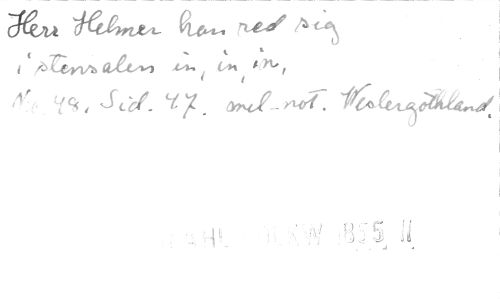 Herr Helmer han red sig
i stensalen in, in, in,
No. 48. Sid. 47. mel. not. Westergöthland.
1855 II